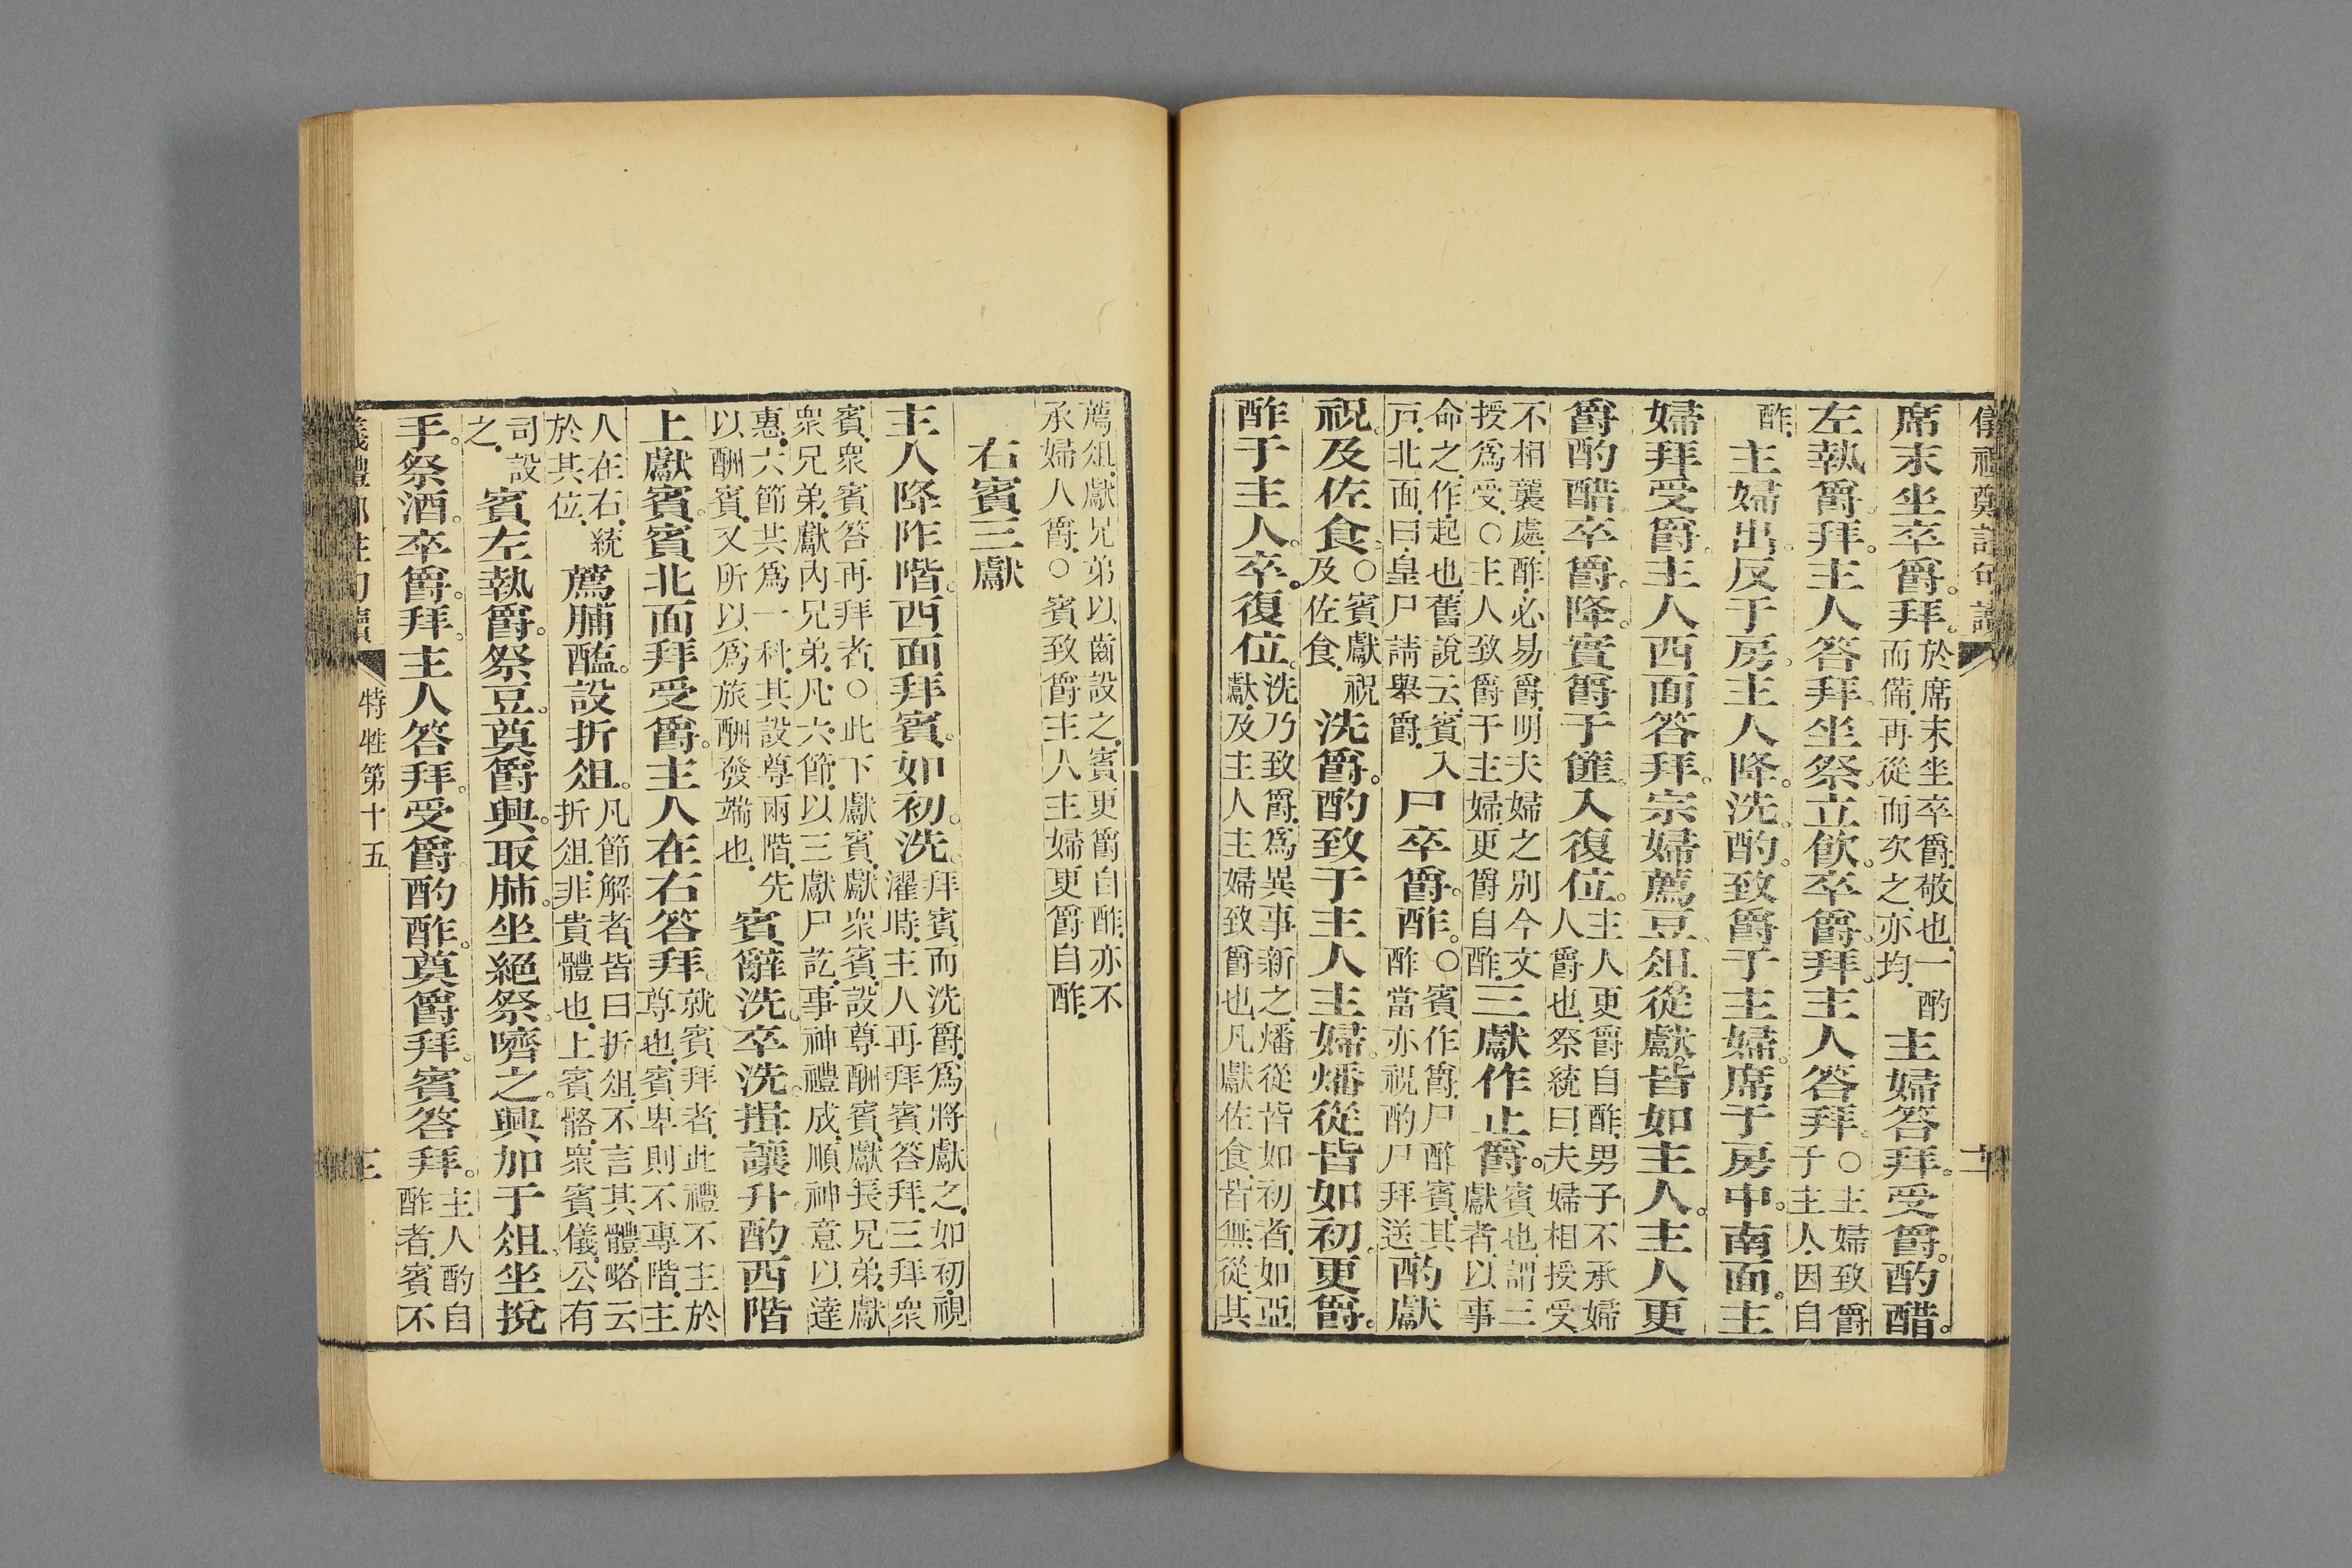 儀禮鄭註句讀
席末坐卒爵。拜。於席末坐卒爵敬也一酌而備再從而次之亦均主婦答拜。受爵。酌醋。
左執爵。拜。主人答拜。坐祭。立飲。卒爵。拜。主人答拜。○主婦致爵于主人因自
酢主婦出。反于房。主人降。洗。酌。致爵于主婦。席于房中。南面。主
婦拜受爵。主人西面答拜。宗婦薦豆俎從獻。皆如主人。主人更
爵酌醋卒爵。降。實爵于篚。入復位。主人更爵自酢男子不承婦人爵也祭統曰夫婦相授受
不相襲處酢必易爵明夫婦之別今文授爲受○主人致爵于主婦更爵自酢三獻作止爵。賓也謂三獻者以事
命之作起也舊說云賓入戸北面曰皇尸請舉爵尸卒爵。酢。○賓作爵尸酢賓其酢當亦祝酌尸拜送酌獻
祝。及佐食。○賓獻祝及佐食洗爵。酌致于主人主婦。燔從皆如初。更爵。
酢于主人。卒。復位。洗乃致爵爲異事新之燔從皆如初者如亞獻及主人主婦致爵也凡獻佐食皆無從其
薦俎獻兄弟以齒設之賓更爵自酢亦不承婦人爵○賓致爵主人主婦更爵自酢
右賓三獻
主人降阼階。西面拜賓。如初。洗。拜賓而洗爵爲將獻之如初視濯時主人再拜賓答拜三拜衆
賓衆賓答再拜者○此下獻賓獻衆賓設尊酬賓獻長兄弟獻衆兄弟獻內兄弟凡六節以三獻尸訖事神禮成順神意以達
惠六節共爲一科其設尊兩階先以酬賓又所以爲旅酬發端也賓辭洗。卒洗。揖讓升。酌西階
上獻賓。賓北面拜受爵。主人在右答拜。就賓拜者此禮不主於尊也賓卑則不專階主
人在右統於其位薦脯醢。設折俎。凡節解者皆曰折俎不言其體略云折俎非貴體也上賓骼衆賓儀公有
司設之賓左執爵。祭豆。奠爵興。取肺。坐絕祭。嚌之。興加于俎。坐挩
手。祭酒。卒爵。拜。主人答拜。受爵酌酢。奠爵拜。賓答拜。主人酌自酢者賓不
特牲第十五